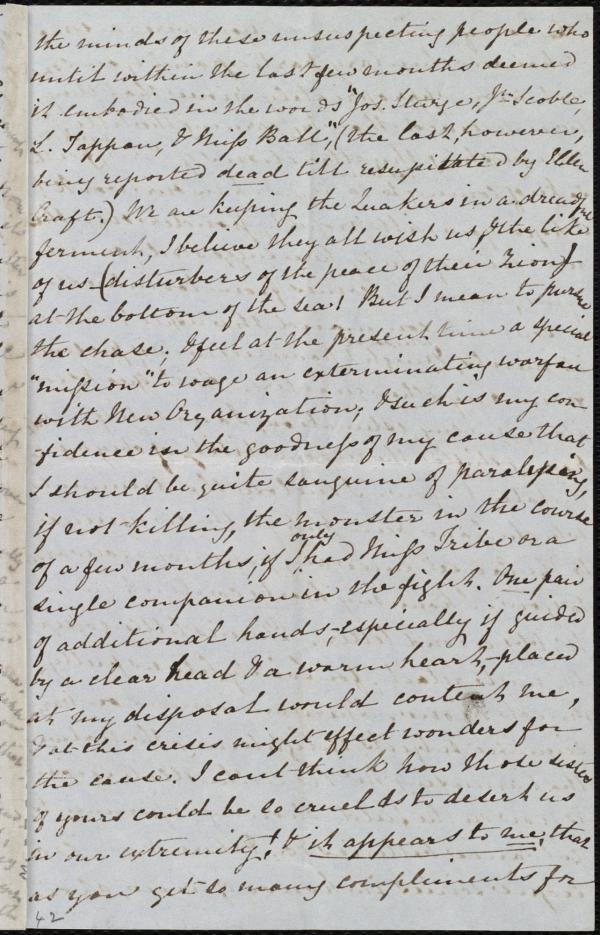 the minds of these unsuspecting people who
until within the last few months deemed
it embodied in the words "Jos. Sturge, Jn. Scoble,
L. Tappan, & Miss Ball", (the last, however,
being reported dead till resuscitated by Ellen
Craft.) We are keeping the Quakers in a dreadful
ferment, I believe they all wish us, & the like
of us (disturbers of the peace of their Zion)
at the bottom of the sea! But I mean to pursue
the chase. I feel at the present time a special
"mission" to wage an exterminating warfare
with New Organization; & such is my con-
fidence in the goodness of my cause that
I should be quite sanguine of paralysing,
if not killing, the monster in the course
of a few months, if I only had Miss Tribe or a
single companion in the fight. One pair
of additional hands, especially if guided
by a clear head & a warm heart, placed
at my disposal would content me,
& at this crisis might effect wonders for
the cause. I cant think how those sisters
of yours could be so cruel as to desert us
in our extremity! & it appears to me, that
as you get so many compliments for
42